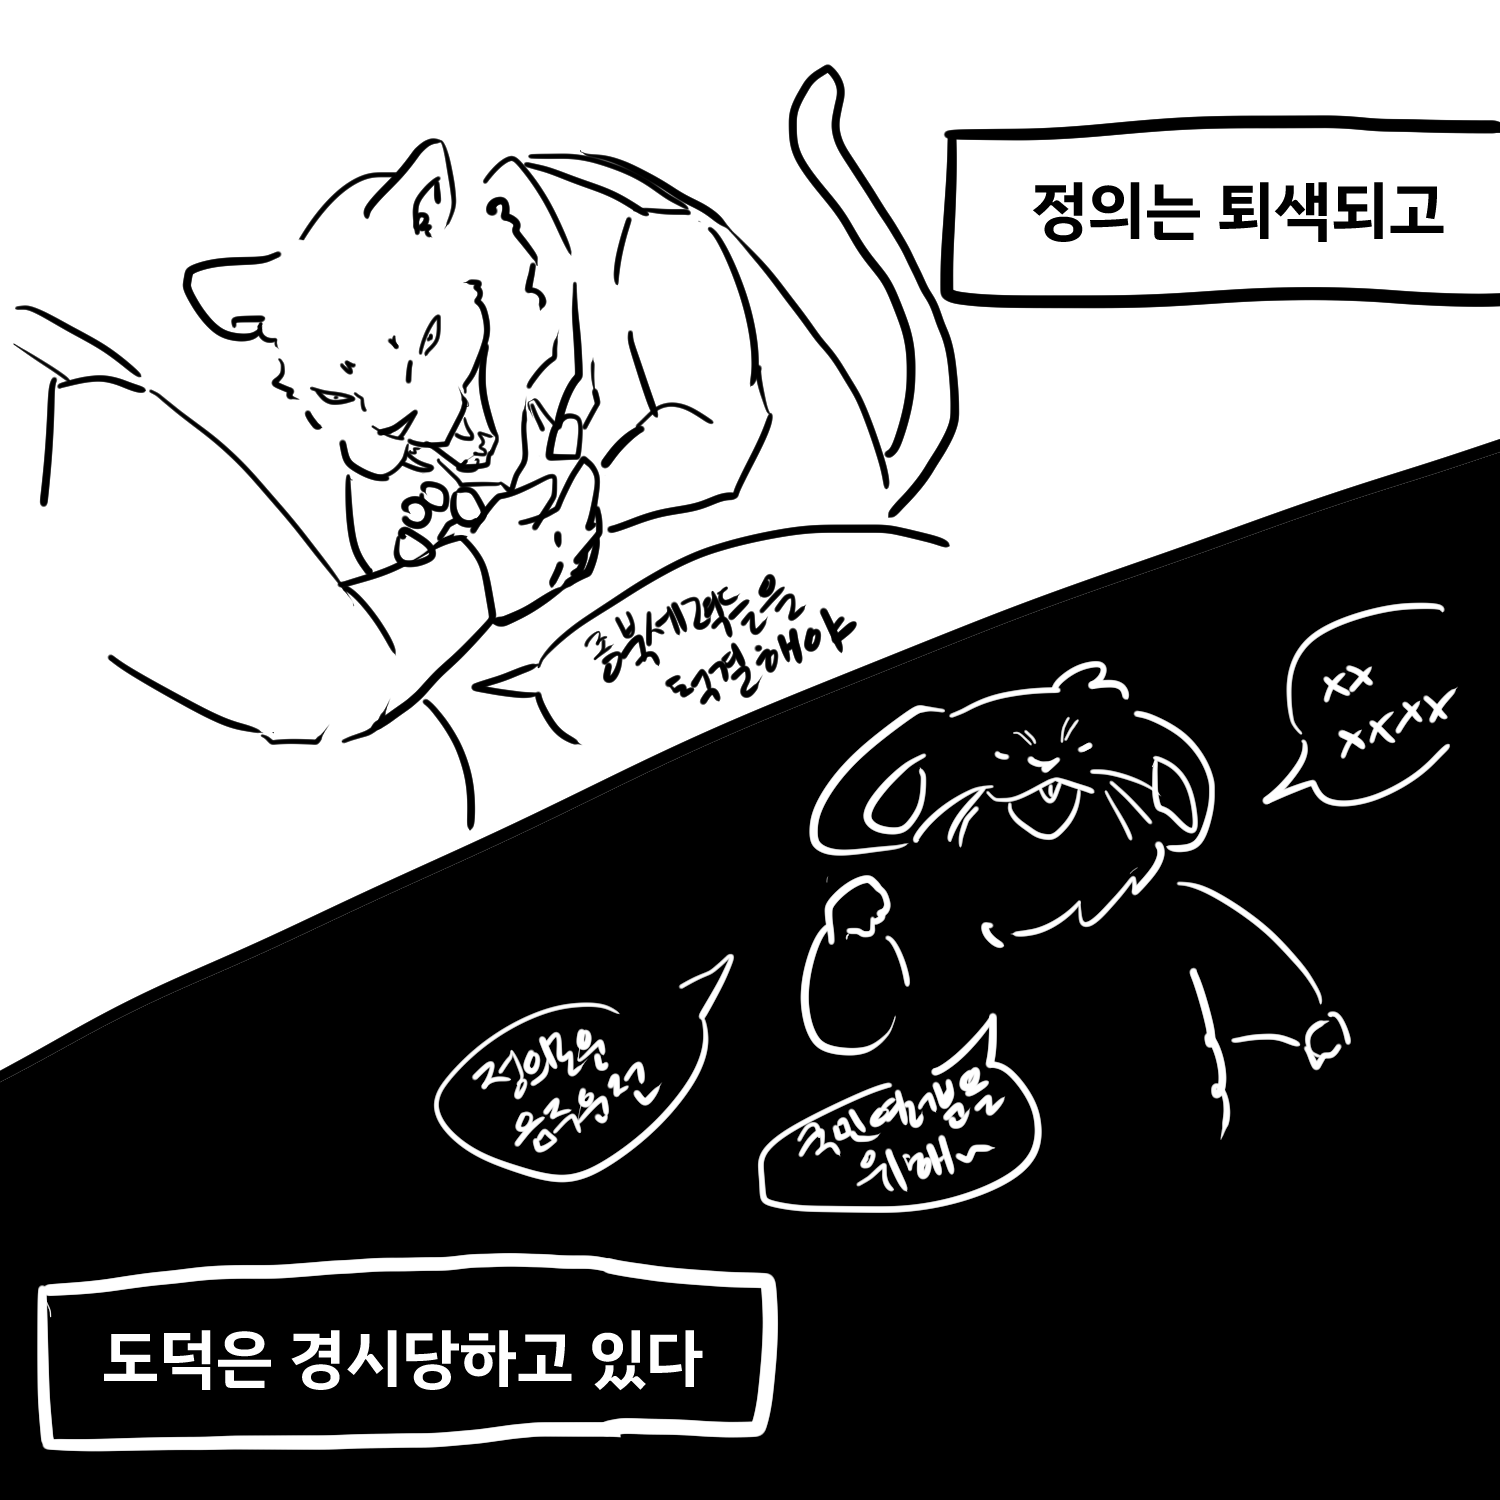 정의는 퇴색되고
종북세력들을
척결해야
xx
xxxxx
정의로운
음주운전
국민여러분을
위해~
도덕은 경시당하고 있다